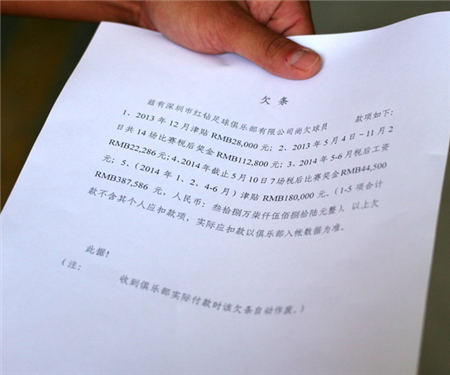 欠 条
兹有深圳市红钻足球俱乐部有限公司尚欠球员 款项如下:
1、2013 年 12 月津贴 RMB28,000 元; 2、2013 年 5 月 4 日~11 月 2
日共 14 场比赛税后奖金 RMB112,800 元; 3、2014 年 5-6 月税后工资
RMB22,286 元; 4、2014 年截止 5 月 10 日 7 场税后比赛奖金 RMB44,500
元; 5、(2014 年 1、2、4-6 月) 津贴 RMB180,000 元。(1-5 项合计
RMB387,586 元, 人民币: 叁拾捌万柒仟伍佰捌拾陆元整), 以上欠
款不含其个人应扣款项, 实际应扣款以俱乐部入帐数据为准。
此据!
(注: 收到俱乐部实际付款时该欠条自动作废。)